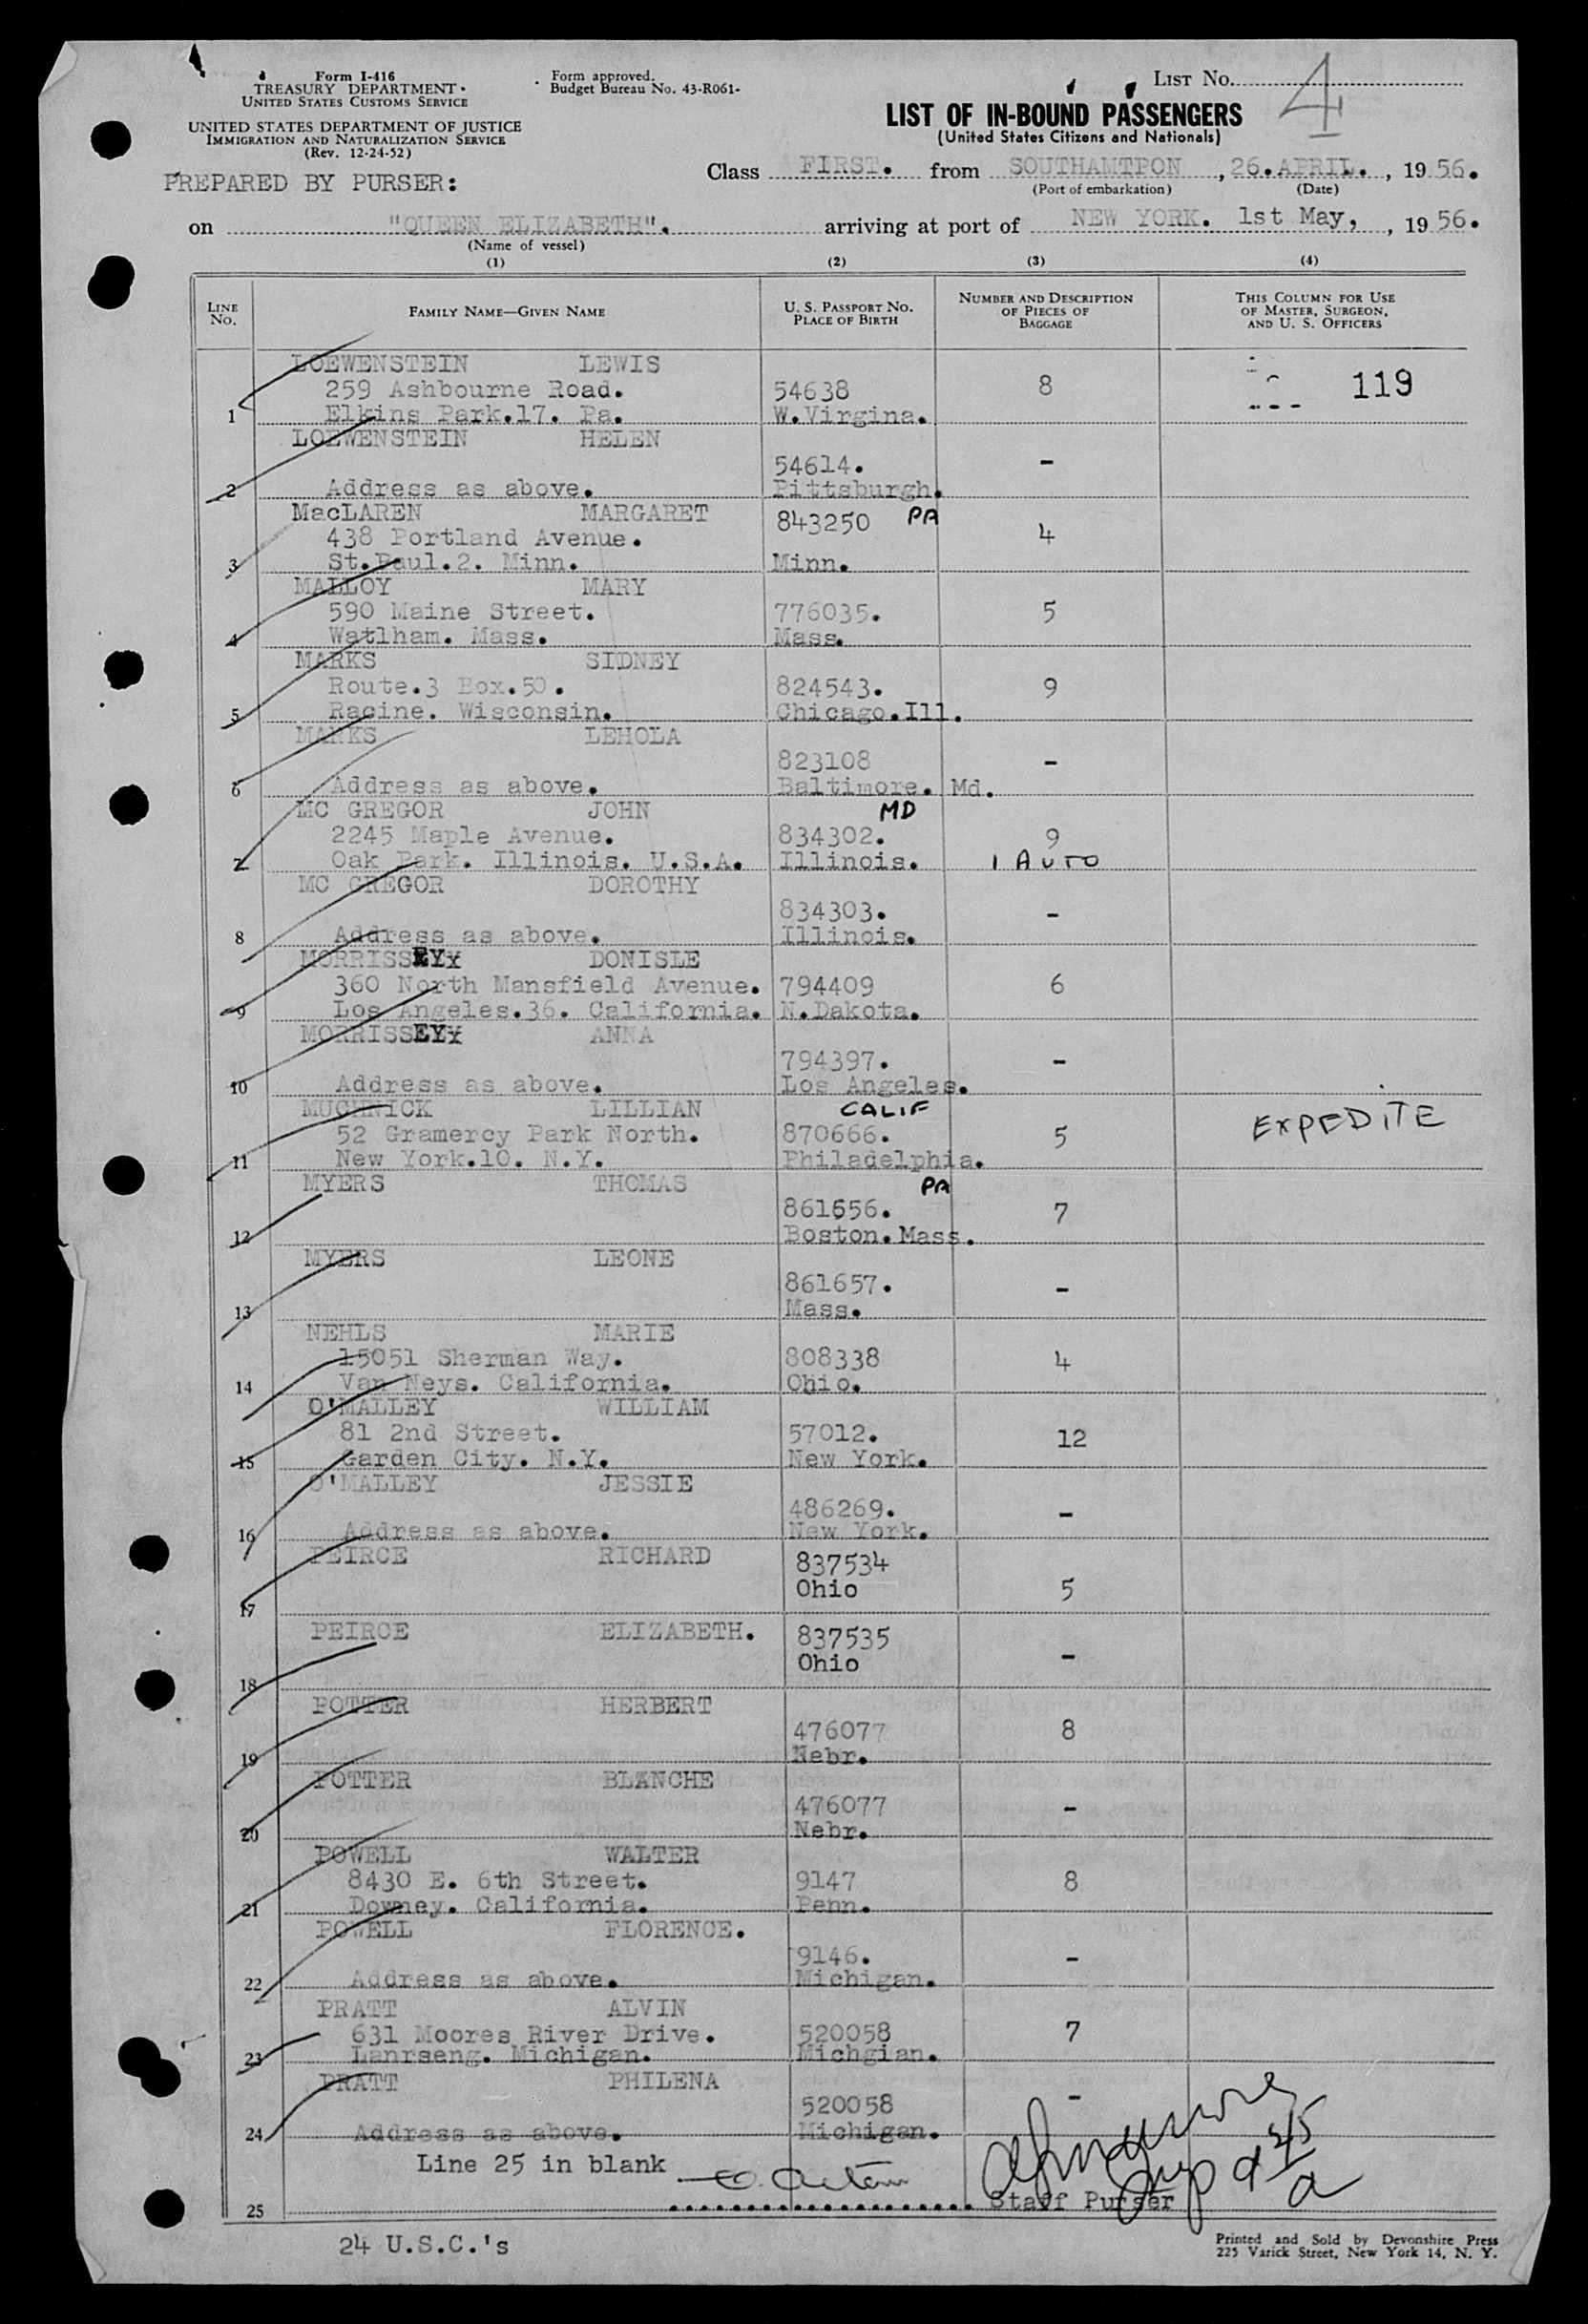 Form I-416
TREASURY DEPARTMENT
UNITED STATES CUSTOMS SERVICE
UNITED STATES DEPARTMENT OF JUSTICE
IMMIGRATION AND NATURALIZATION SERVICE
(Rev. 12-24-52)
Form approved.
Budget Bureau No. 43-R061-
LIST No. 4
LIST OF IN-BOUND PASSENGERS
(United States Citizens and Nationals)
PREPARED BY PURSER:
Class FIRST. from SOUTHAMTPON , 26.APRIL. , 19 56.
(Port of embarkation) (Date)
on "QUEEN ELIZABETH". arriving at port of NEW YORK. 1st May, , 19 56.
(Name of vessel)
(1) (2) (3) (4)
LINE No. FAMILY NAME—GIVEN NAME U. S. PASSPORT NO. PLACE OF BIRTH NUMBER AND DESCRIPTION OF PIECES OF BAGGAGE THIS COLUMN FOR USE OF MASTER, SURGEON, AND U. S. OFFICERS
LOEWENSTEIN LEWIS
259 Ashbourne Road. 54638 8 119
1 Elkins Park.17. Pa. W.Virgina.
LOEWENSTEIN HELEN
54614. -
2 Address as above. Pittsburgh.
MacLAREN MARGARET 843250 PA
438 Portland Avenue. 4
3 St.Paul.2. Minn. Minn.
MALLOY MARY
590 Maine Street. 776035. 5
4 Watlham. Mass. Mass.
MARKS SIDNEY
Route.3 Box.50. 824543. 9
5 Racine. Wisconsin. Chicago.Ill.
MARKS LEHOLA
823108 -
6 Address as above. Baltimore. Md.
MC GREGOR JOHN MD
2245 Maple Avenue. 834302. 9
7 Oak Park. Illinois. U.S.A. Illinois. 1 AUTO
MC GREGOR DOROTHY
834303. -
8 Address as above. Illinois.
MORRISSEYY DONISLE
360 North Mansfield Avenue. 794409 6
9 Los Angeles.36. California. N.Dakota.
MORRISSEYY ANNA
794397. -
10 Address as above. Los Angeles.
MUCHNICK LILLIAN CALIF
52 Gramercy Park North. 870666. 5 EXPEDITE
11 New York.10. N.Y. Philadelphia.
MYERS THOMAS PA
861656. 7
12 Boston.Mass.
MYERS LEONE
861657. -
13 Mass.
NEHLS MARIE
15051 Sherman Way. 808338 4
14 Van Neys. California. Ohio.
O'MALLEY WILLIAM
81 2nd Street. 57012. 12
15 Garden City. N.Y. New York.
O'MALLEY JESSIE
486269. -
16 Address as above. New York.
PEIRCE RICHARD 837534
Ohio 5
17
PEIRCE ELIZABETH. 837535
Ohio -
18
POTTER HERBERT
476077 8
19 Nebr.
POTTER BLANCHE
476077 -
20 Nebr.
POWELL WALTER
8430 E. 6th Street. 9147 8
21 Downey. California. Penn.
POWELL FLORENCE.
9146. -
22 Address as above. Michigan.
PRATT ALVIN
631 Moores River Drive. 520058 7
23 Lanrseng. Michigan. Michgian.
PRATT PHILENA
520058 -
24 Address as above. Michigan.
Line 25 in blank
25 Staff Purser
24 U.S.C.'s
Printed and Sold by Devonshire Press
225 Varick Street, New York 14, N. Y.